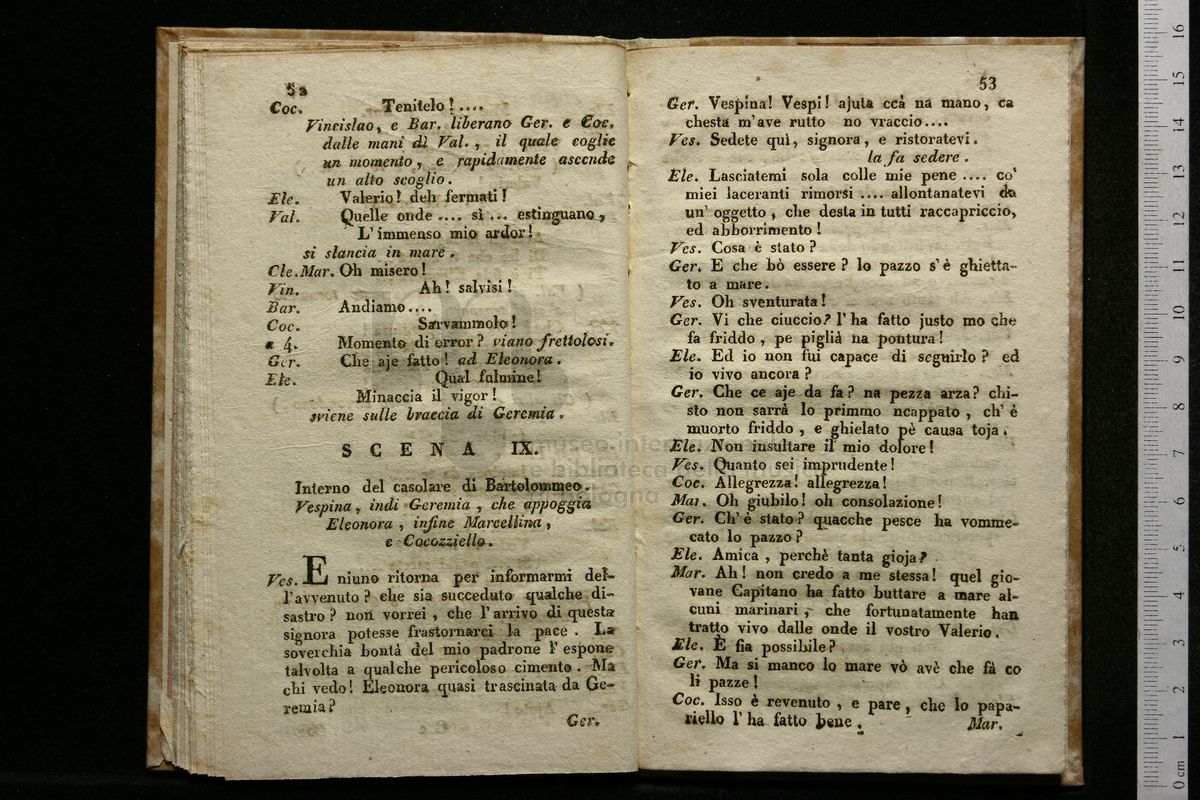 52
Coc. Tenitelo! ....
Vincislao, e Bar. liberano Ger. e Coc.
dalle mani di Val., il quale coglie
un momento, e rapidamente ascende
un alto scoglio.
Ele. Valerio! deh fermati!
Val. Quelle onde .... sì ... estinguano,
L'immenso mio ardor!
si slancia in mare.
Cle. Mar. Oh misero!
Vin. Ah! salvisi!
Bar. Andiamo....
Coc. Sarvammolo!
a 4. Momento di orror? viano frettolosi.
Ger. Che aje fatto! ad Eleonora.
Ele. Qual fulmine!
Minaccia il vigor!
sviene sulle braccia di Geremia.
SCENA IX.
Interno del casolare di Bartolommeo.
Vespina, indi Geremia, che appoggia
Eleonora, infine Marcellina,
e Cocozziello.
Ves. E niuno ritorna per informarmi del-
l'avvenuto? che sia succeduto qualche di-
sastro? non vorrei, che l'arrivo di questa
signora potesse frastornarci la pace. La
soverchia bontà del mio padrone l'espone
talvolta a qualche pericoloso cimento. Ma
chi vedo! Eleonora quasi trascinata da Ge-
remia?
Ger.
53
Ger. Vespina! Vespi! ajuta ccà na mano, ca
chesta m'ave rutto no vraccio....
Ves. Sedete quì, signora, e ristoratevi.
la fa sedere.
Ele. Lasciatemi sola colle mie pene .... co'
miei laceranti rimorsi .... allontanatevi da
un' oggetto, che desta in tutti raccapriccio,
ed abborrimento!
Ves. Cosa è stato?
Ger. E che bò essere? lo pazzo s'è ghietta-
to a mare.
Ves. Oh sventurata!
Ger. Vi che ciuccio? l'ha fatto justo mo che
fa friddo, pe piglià na pontura!
Ele. Ed io non fui capace di seguirlo? ed
io vivo ancora?
Ger. Che ce aje da fa? na pezza arza? chi-
sto non sarrà lo primmo ncappato, ch'è
muorto friddo, e ghielato pè causa toja.
Ele. Non insultare il mio dolore!
Ves. Quanto sei imprudente!
Coc. Allegrezza! allegrezza!
Mar. Oh giubilo! oh consolazione!
Ger. Ch'è stato? quacche pesce ha vomme-
cato lo pazzo?
Ele. Amica, perchè tanta gioja?
Mar. Ah! non credo a me stessa! quel gio-
vane Capitano ha fatto buttare a mare al-
cuni marinari, che fortunatamente han
tratto vivo dalle onde il vostro Valerio.
Ele. È fia possibile?
Ger. Ma si manco lo mare vò avè che fà co
li pazze!
Coc. Isso è revenuto, e pare, che lo papa-
riello l'ha fatto bene.
Mar.
0 cm 1 2 3 4 5 6 7 8 9 10 11 12 13 14 15 16